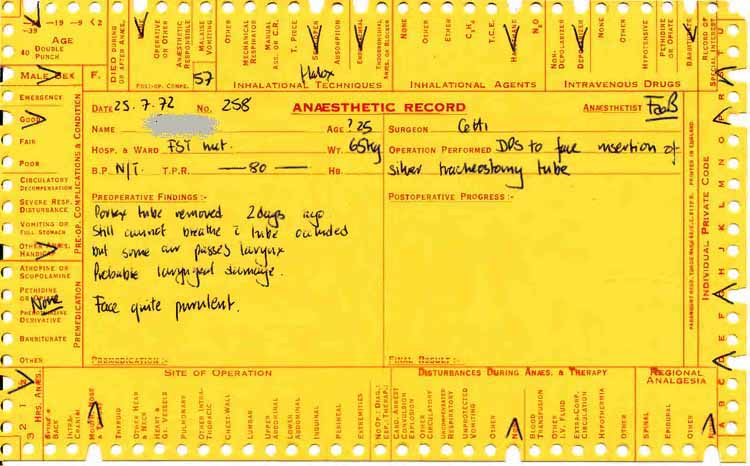 -39
-19 -9 <2
40
AGE
DOUBLE PUNCH
DIED DURING OR AFTER ANÆS.
OPERATIVE OR OTHER
ANÆSTHETIC RESPONSIBLE
MALAISE VOMITING
OTHER
MECHANICAL RESPIRATOR
MANUAL ASS. OR C.R.
T. PIECE
ABSORPTION
NONE
OTHER
ETHER
C₃H₆
T.C.E.
N₂O
NON-DEPOLARIZER
DEPOLARIZER
OTHER
HYPOTENSIVE
PETHIDINE OR OPIATE
BARBITURATE
RECORD OF SPECIAL INTEREST
MALE SEX F.
FOLL-OP. COMPS.
57
Halox
INHALATIONAL TECHNIQUES
INHALATIONAL AGENTS
INTRAVENOUS DRUGS
DATE 25.7.72 No. 258 ANÆSTHETIC RECORD ANÆSTHETIST
NAME AGE ?25 SURGEON
HOSP. & WARD FST hut. WT. 65kg OPERATION PERFORMED DPS to face insertion of
B.P. N/T. T.P.R. — 80 — HB. silver tracheostomy tube
PREOPERATIVE FINDINGS :- POSTOPERATIVE PROGRESS :-
Portex tube removed 2 days ago
Still cannot breathe c̄ tube occluded
but some air passes larynx
Probable laryngeal damage.
Face quite purulent.
PREMEDICATION :- FINAL RESULT :-
EMERGENCY
GOOD
FAIR
POOR
CIRCULATORY DECOMPENSATION
SEVERE RESP. DISTURBANCE
VOMITING OR FULL STOMACH
OTHER ANÆS. HANDICAP
PRE-OP. COMPLICATIONS & CONDITION
ATROPINE OR SCOPOLAMINE
PETHIDINE OR OPIATE
None
PHENOTHIAZINE DERIVATIVE
BARBITURATE
OTHER
PREMEDICATION
INDIVIDUAL PRIVATE CODE
PRINTED IN ENGLAND.
SITE OF OPERATION
DISTURBANCES DURING ANÆS. & THERAPY
REGIONAL ANALGESIA
3 2 1
HRS. ANÆS.
SPINE & BACK
INTRA-CRANIAL
THYROID
OTHER HEAD & NECK
HEART & GT. VESSELS
PULMONARY
OTHER INTRA-THORACIC
CHEST-WALL
LUMBAR
UPPER ABDOMINAL
LOWER ABDOMINAL
INGUINAL
PERINEAL
EXTREMITIES
NO OP.: DIAG.: EXP. THERAP.:
CARD. ARREST CONVULSION EXPLOSION
OTHER CIRCULATORY
UNCOMPENSATED RESPIRATORY
UNEXPECTED VOMITING
OTHER
BLOOD TRANSFUSION
OTHER I.V. FLUID
EXTRA-CORP. CIRCULATION
HYPOTHERMIA
OTHER
SPINAL
EPIDURAL
OTHER